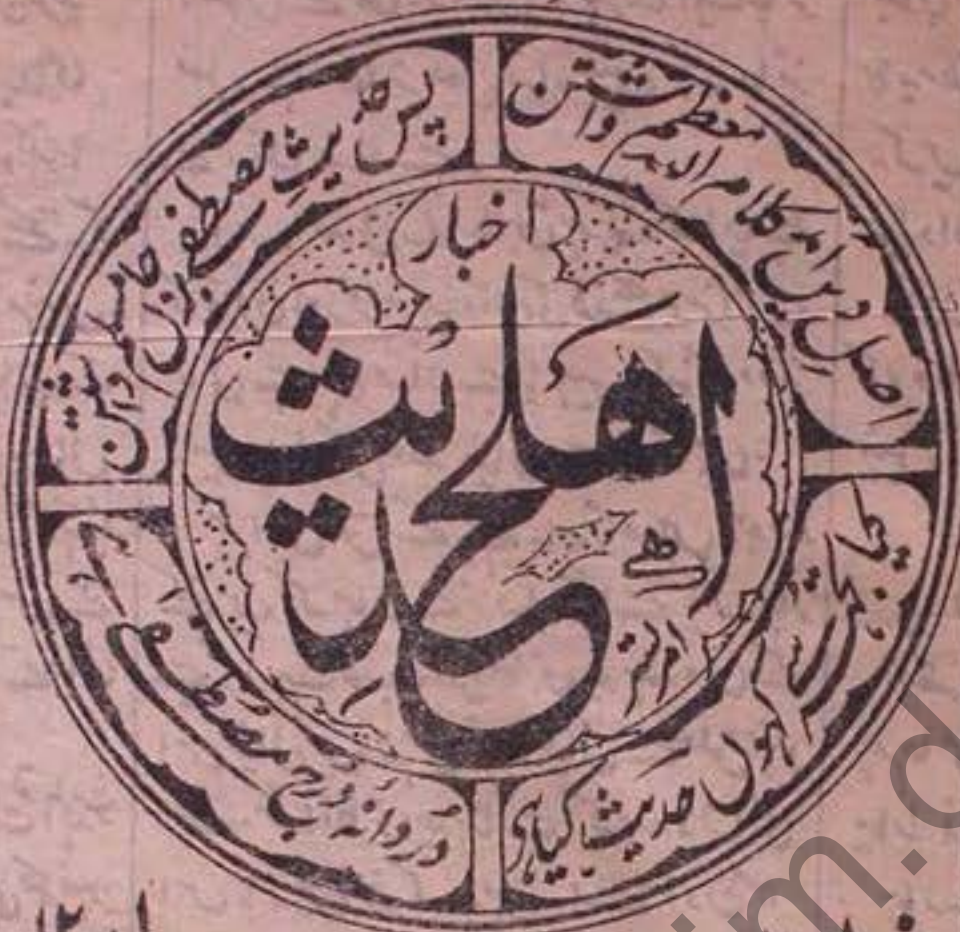 اصل دین آمد کلام اللہ معظم داشتن
پس حدیث مصطفےٰ برجاں مسلم داشتن
اخبار
اهلحدیث
امرتسر
ہوں حدیث کیا ہے
دردانۂ درج مصطفےٰ ہے